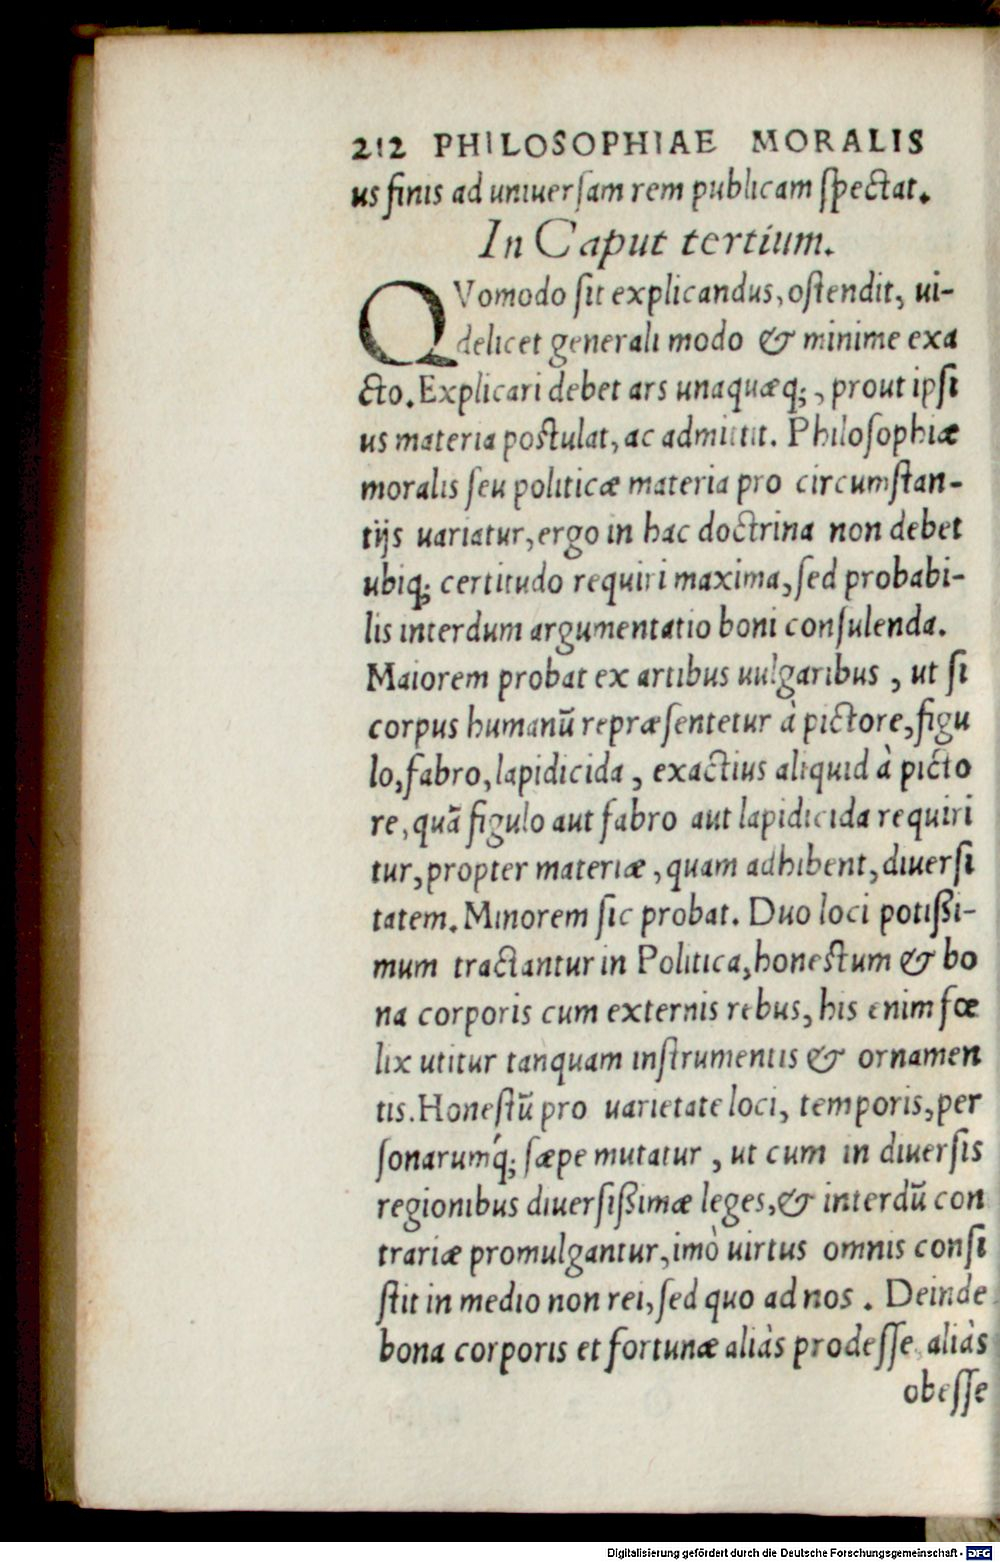 212 PHILOSOPHIAE MORALIS
us finis ad uniuersam rem publicam spectat.
In Caput tertium.
QVomodo sit explicandus, ostendit, ui-
delicet generali modo & minime exa
cto. Explicari debet ars unaquæq;, prout ipsi
us materia postulat, ac admittit. Philosophiæ
moralis seu politicæ materia pro circumstan-
tijs uariatur, ergo in hac doctrina non debet
ubiq; certitudo requiri maxima, sed probabi-
lis interdum argumentatio boni consulenda.
Maiorem probat ex artibus uulgaribus, ut si
corpus humanũ repræsentetur à pictore, figu
lo, fabro, lapidicida, exactius aliquid à picto
re, quã figulo aut fabro aut lapidicida requiri
tur, propter materiæ, quam adhibent, diuersi
tatem. Minorem sic probat. Duo loci potißi-
mum tractantur in Politica, honestum & bo
na corporis cum externis rebus, his enim fœ
lix utitur tanquam instrumentis & ornamen
tis. Honestũ pro uarietate loci, temporis, per
sonarumq́; sæpe mutatur, ut cum in diuersis
regionibus diuersißimæ leges, & interdũ con
trariæ promulgantur, imò uirtus omnis consi
stit in medio non rei, sed quo ad nos. Deinde
bona corporis et fortunæ aliàs prodesse, aliàs
obesse
Digitalisierung gefördert durch die Deutsche Forschungsgemeinschaft - DFG